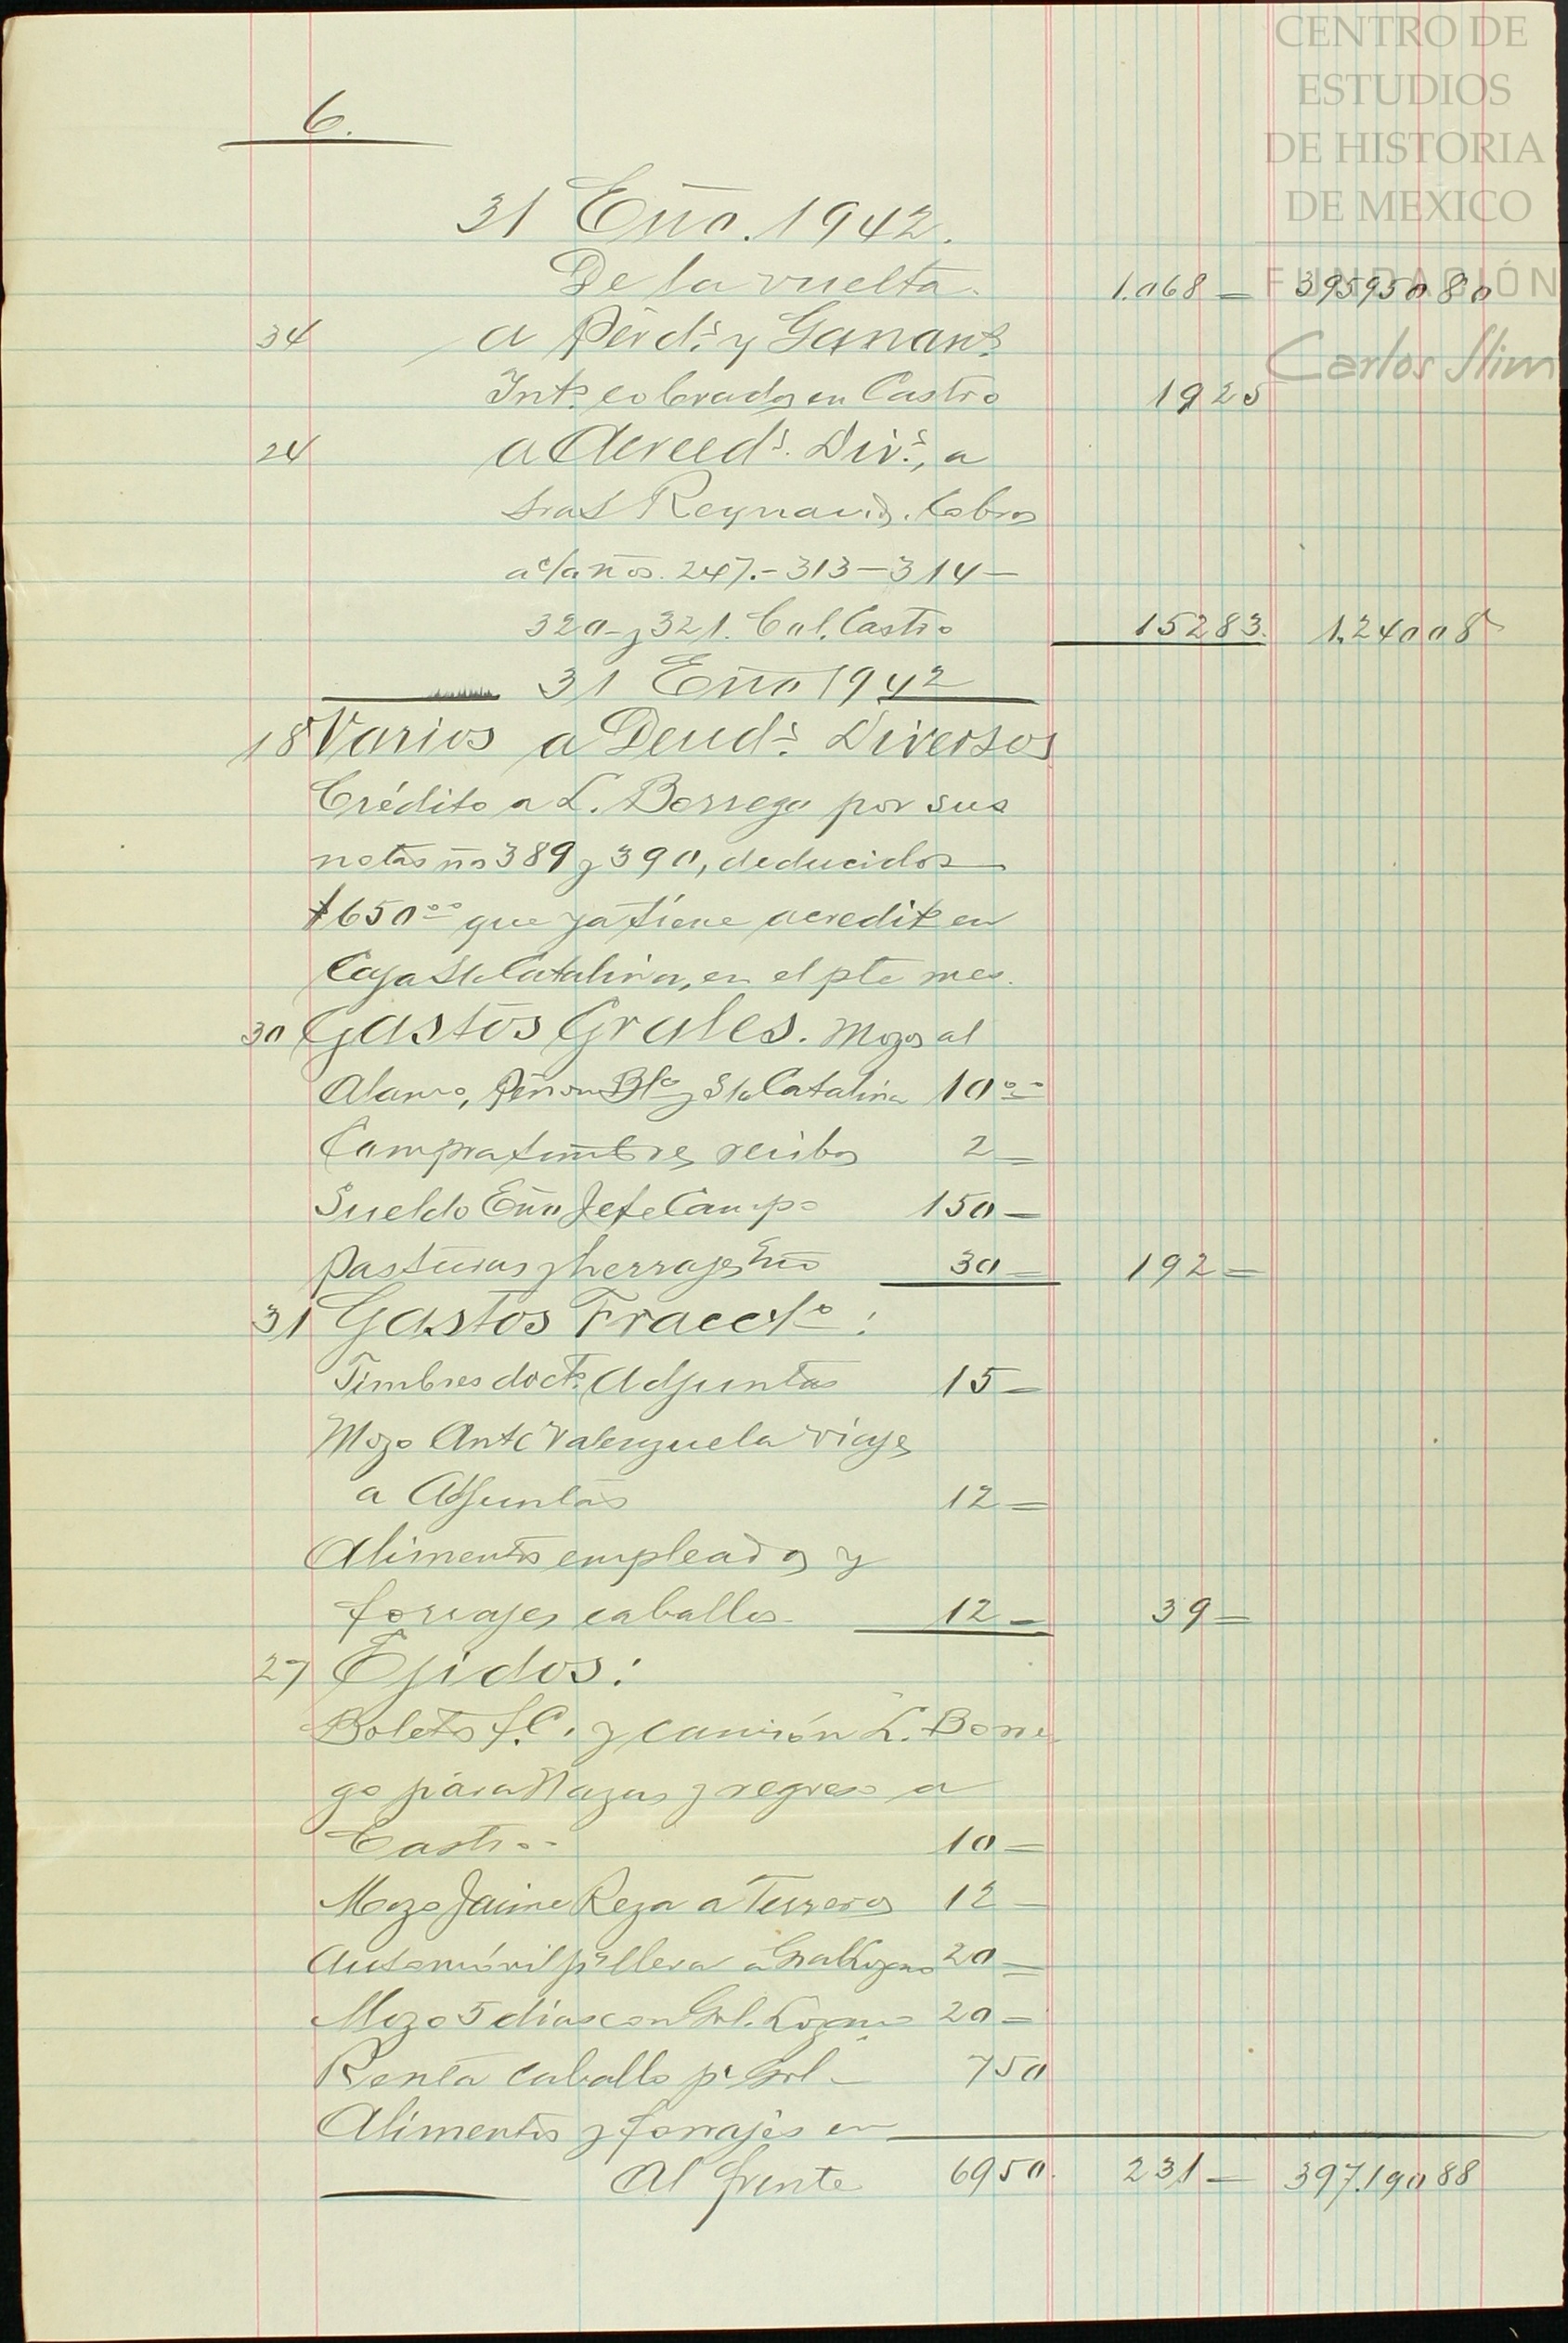 CENTRO DE
ESTUDIOS
DE HISTORIA
DE MEXICO
FUNDACIÓN
Carlos Slim
6.
31 Eño. 1942.
De la vuelta. 1.068 — 395950 80
34 a Pérds. y Ganans.
Ints. cobrados en Castro 19 25
24 a Acreeds. Divs., a
Sras Reynaud. Cobros
a/c años. 247.- 313 - 314 -
320 - y 321. Col. Castro 152 83. 1.240 08
31 Eño 1942
18 Varios a Deuds. Diversos
Crédito a L. Borrego por sus
notas nos 389 y 390, deducidos
$650.00 que ya tiene acredit en
Caja Sta Catalina, en el pte mes.
30 Gastos Grales. Mozos al
Alamo, Peñon Blco y Sta Catalina 10.00
Compra timbres recibos 2 —
Sueldo Eño Jefe Campo 150 —
Pasturas y herrajes Eño 30 — 192 —
31 Gastos Fraccto:
Timbres docts. Adjuntas 15 —
Mozo Anto Valenzuela viaje
a Adjuntas 12 —
Alimentos empleados y
forrajes caballos. 12 — 39 —
27 Ejidos:
Boletos f.C. y camión L. Borre
go para Nazas y regreso a
Castro. 10 —
Mozo Jaime Reza a Terreros 12 —
Automóvil pa llevar a Gral Lozano 20 —
Mozo 5 dias con Gral. Lozano 20 —
Renta caballo pa Gral — 7 50
Alimentos y forrajes en
Al frente 69 50. 231 — 397.190 88